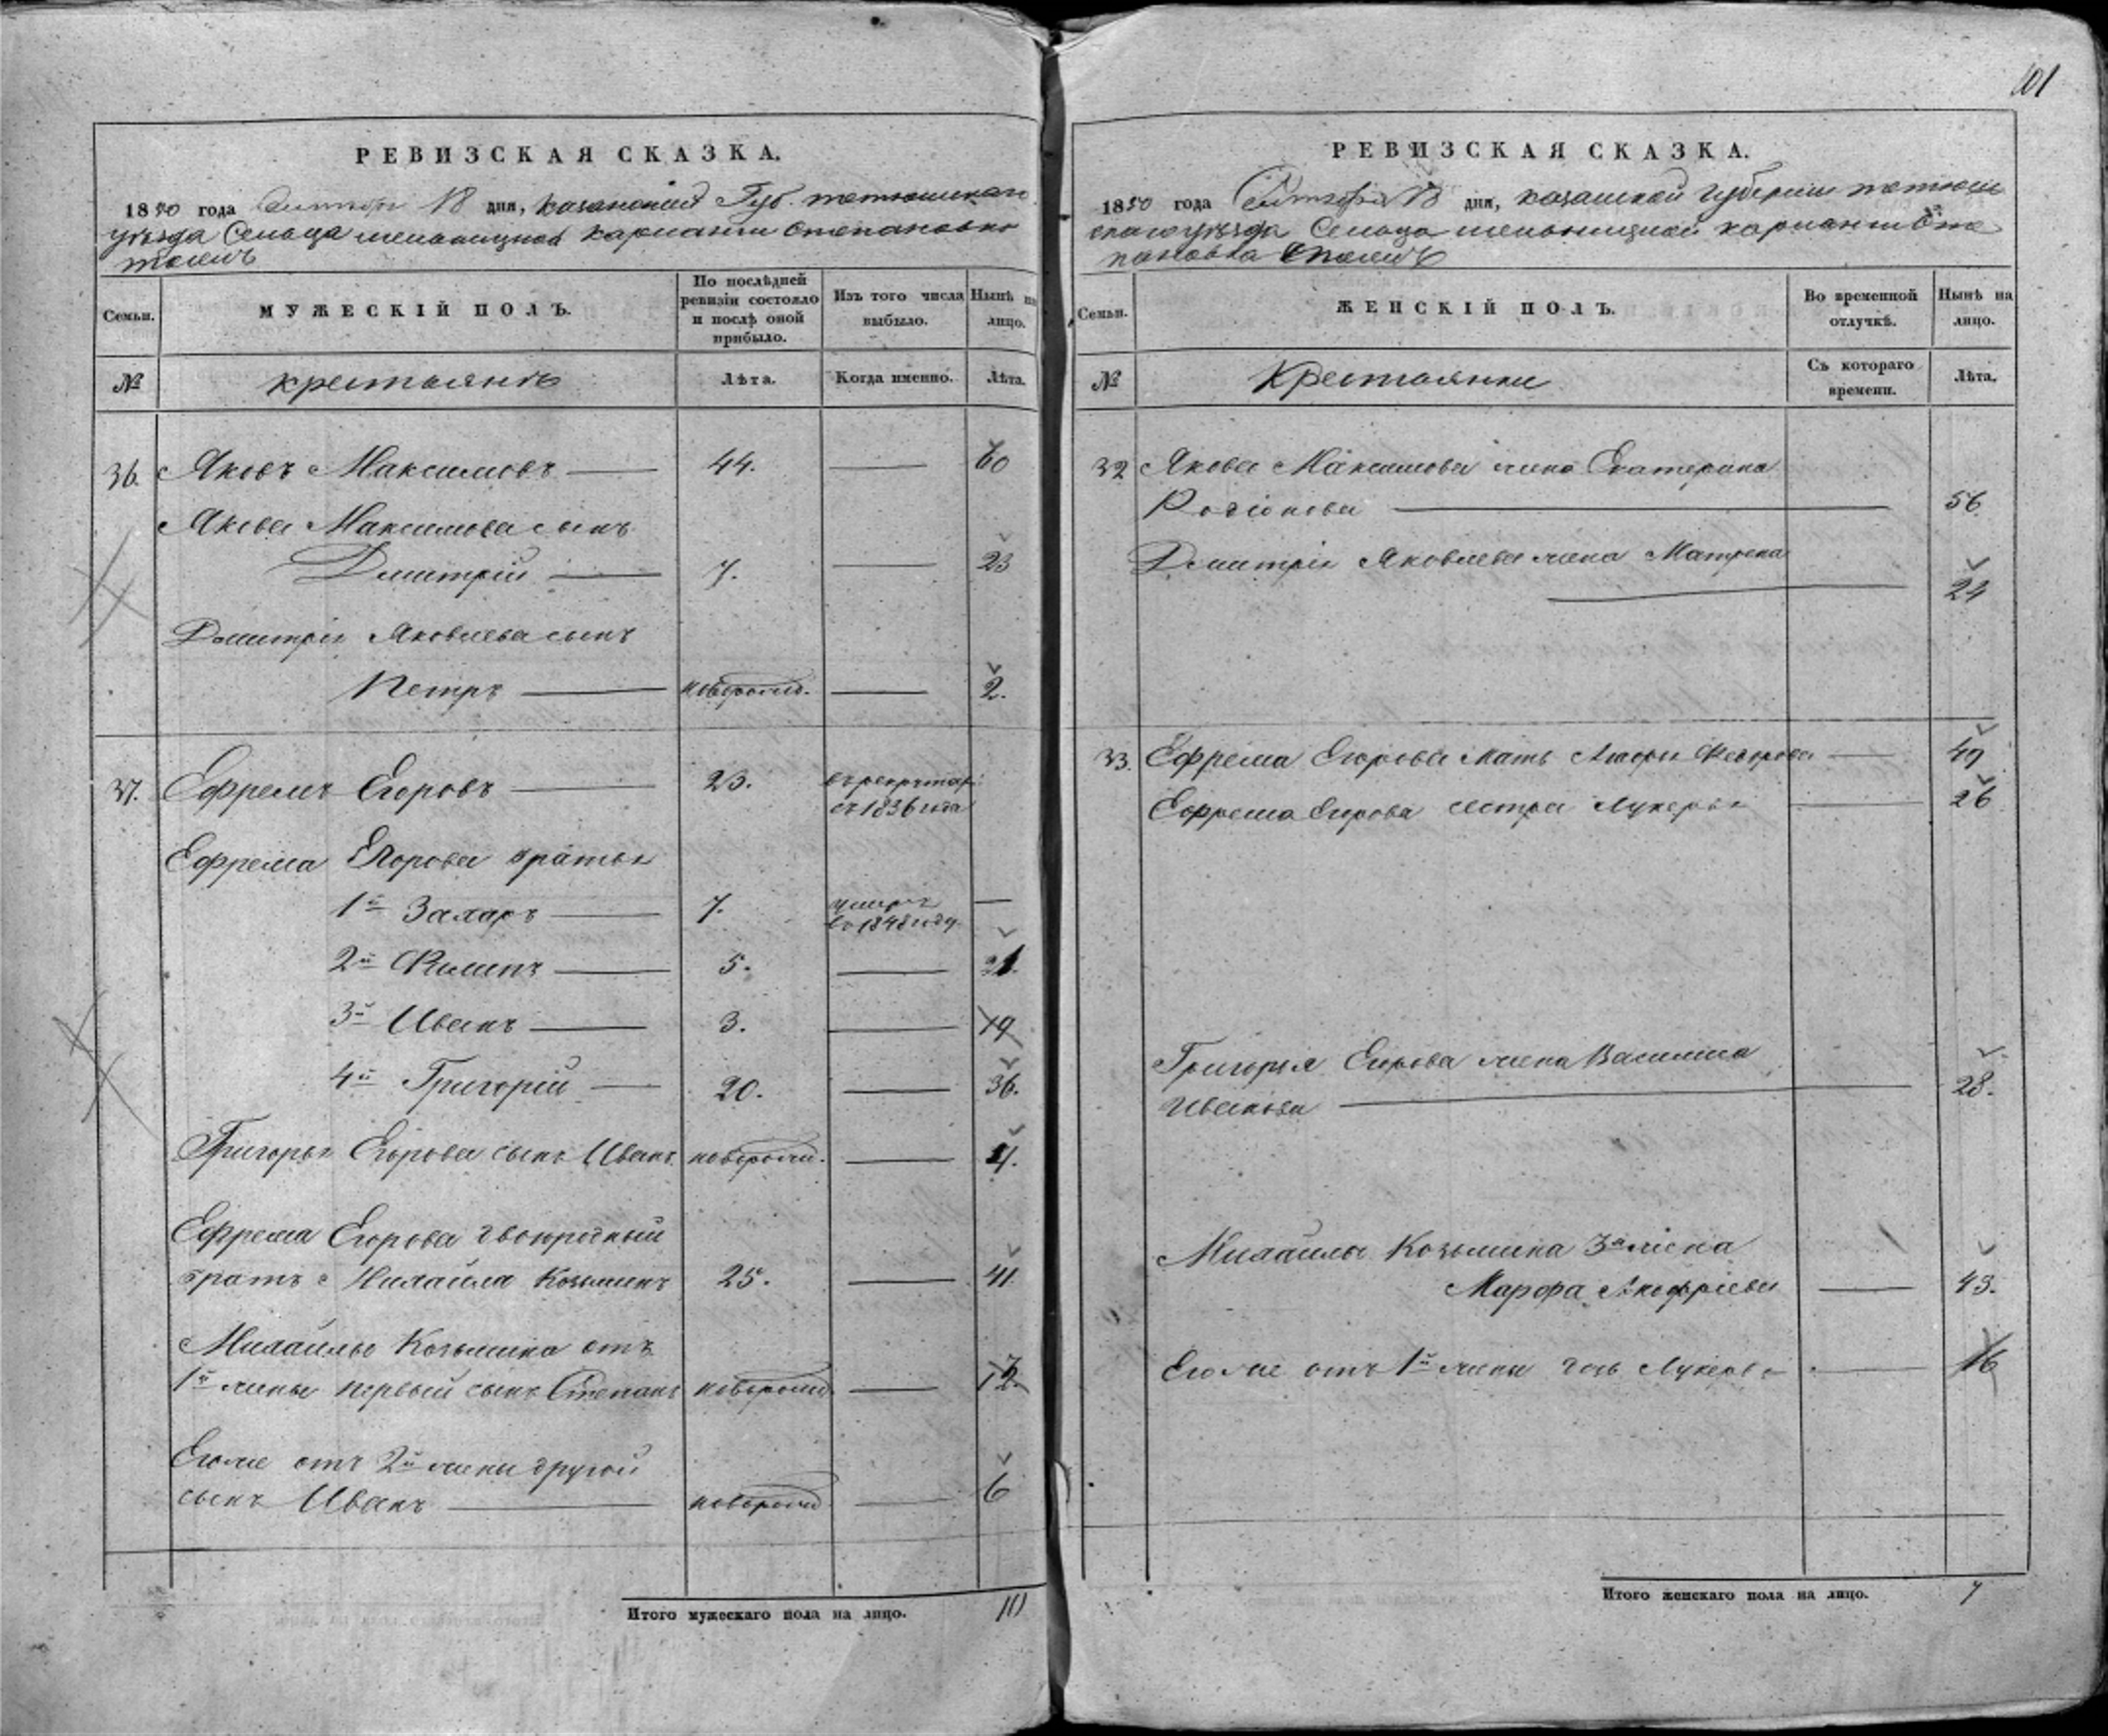 101
РЕВИЗСКАЯ СКАЗКА.
1850 года Сентября 18 дня, Казанской Губ. тетюшскаго
уѣзда Сельца Степановка
тожъ
Семьи. МУЖЕСКІЙ ПОЛЪ. По послѣдней ревизіи состояло и послѣ оной прибыло. Изъ того числа выбыло. Нынѣ на лицо.
№ крестьянъ Лѣта. Когда именно. Лѣта.
36. Яковъ Максимовъ 44. 60
Якова Максимова сынъ
Дмитрій 7. 23
Дмитрія Яковлева сынъ
Петръ новорожд. 2.
37. Ефремъ Егоровъ 23. въ рекрутах
съ 1836 года
Ефрема Егорова братья
1й Захаръ 7. умеръ
въ 1848 году
2й Филипъ 5. 21.
3й Иванъ 3. 19
4й Григорій 20. 36.
Григорья Егорова сынъ Иванъ новорожд. 4.
Ефрема Егорова двоюродный
братъ Михайла Козьминъ 25. 41
Михайлы Козьмина отъ
1й жены первый сынъ Степанъ новорожд 12.
Егоже отъ 2й жены другой
сынъ Иванъ новорожд 6
Итого мужескаго пола на лицо. 10
РЕВИЗСКАЯ СКАЗКА.
1850 года Сентября 18 дня, казанской губерніи тетюш
скаго уѣзда Сельца Сте
пановка тожъ
Семьи. ЖЕНСКІЙ ПОЛЪ. Во временной отлучкѣ. Нынѣ на лицо.
№ Крестьянки Съ котораго времени. Лѣта.
32 Якова Максимова жена Екатерина
Родіонова 56
Дмитрія Яковлева жена Матрена
24
33. Ефрема Егорова мать Федорова 49
Ефрема Егорова сестра Лукерья 26
Григорья Егорова жена Василиса
Иванова 28.
Михайлы Козьмина 3я жена
Марфа 43.
Егоже отъ 1й жены дочь Лукерья 16
Итого женскаго пола на лицо. 7